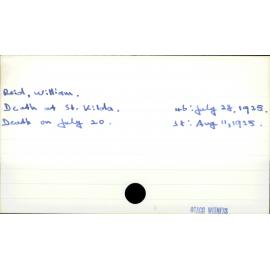 Reid, William.
Death at St. Kilda. 4b: July 28, 1925.
Death on July 20. 1d: Aug 11, 1925.
OTAGO WITNESS